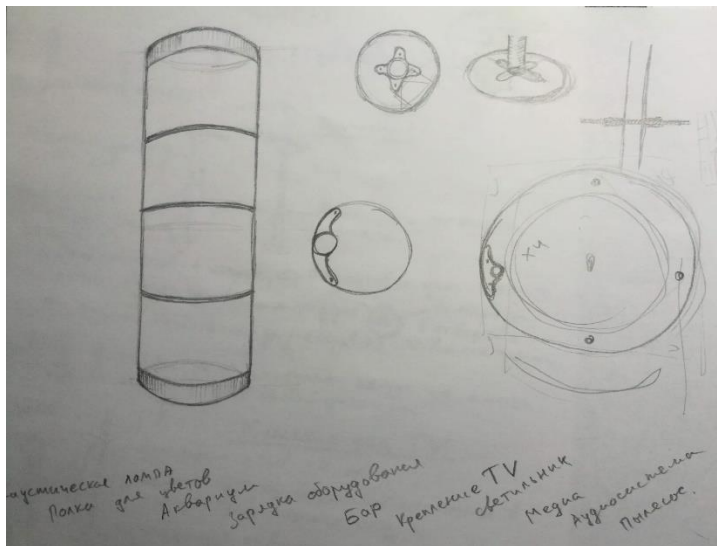 х4
аустическая лампа
Полка для цветов
Аквариум
Зарядка оборудования
Бар
Крепление TV
светильник
Медиа
Аудиосистема
Пылесос.